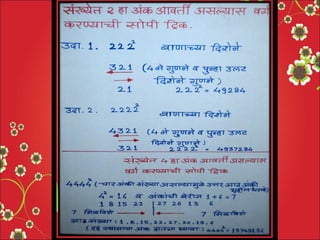 संख्येत 2 हा अंक आवर्ती असल्यास वर्ग
करण्याची सोपी ट्रिक.
उदा. 1. 222² बाणाच्या दिशेने
321 (4 ने गुणने व पुन्हा उलट
दिशेने गुणने)
21 222² = 49284
उदा. 2. 2222² बाणाच्या दिशेने
4321 (4 ने गुणने व पुन्हा उलट
दिशेने गुणने)
321 2222² = 4937284
संख्येत 4 हा अंक आवर्ती असल्यास
वर्ग करण्याची सोपी ट्रिक
4444² (चार अंकी संख्या असल्यामुळे उत्तर आठ अंकी
4² = 16 व अंकांची बेरीज 1+6 = 7
1 8 15 22 27 20 13 6
7 मिळविणे 7 मिळविणे
आठ संख्या : 1, 8, 15, 22, 27, 20, 13, 6
4444² = 19749136